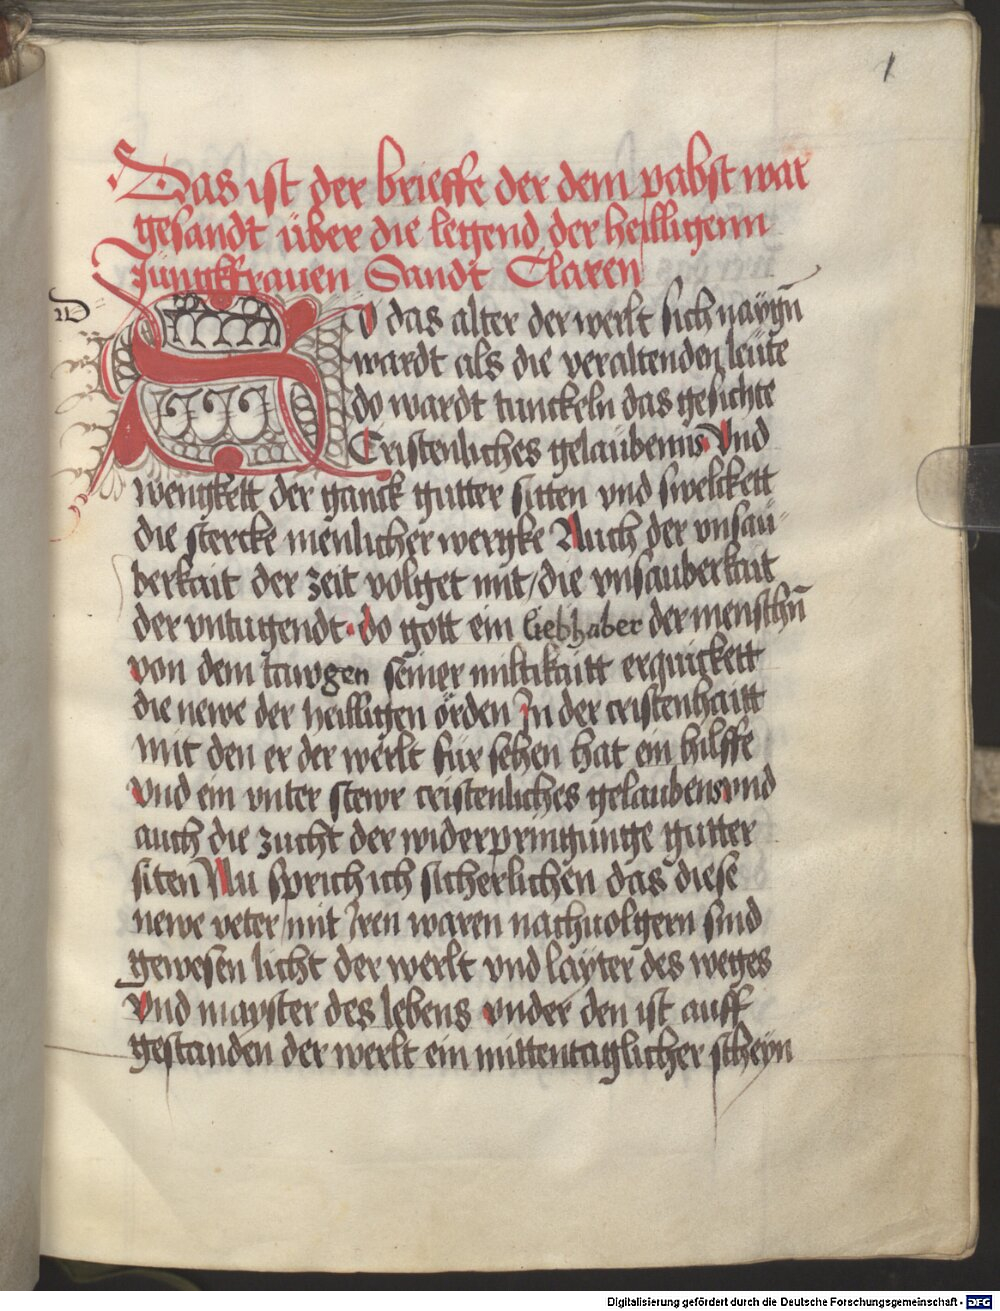 1
Das ist der brieffe der dem pabst war
gesandt über die legend der heilligenn
Jungkfrauen Sandt Claren
D
O das alter der werlt sich naÿgn̄
wardt als die veraltenden leüte
do wardt tunckeln das gesichte
Cristenliches gelaubenns Vnd
wengkett der ganck gutter sitten vnd swelckett
die stercke menlicher wergke Auch der vnsau
berkait der zeit volget mit / die vnsauberkait
der vntugendt · do gott ein liebhaber der menschn̄
von dem tawgen seiner miltikaitt erquickett
die newe der heilligen örden Jn der cristenhaitt
mit den er der werlt für sehen hat ein hilffe
Vnd ein vnter stewr cristenliches gelaubens vnd
auch die zucht der widerpringunge gutter
siten Nu sprich ich sicherlichen das diese
newe veter / mit Jren waren nachuolgern sind
gewesen licht der werlt vnd layter des weges
Vnd mayster des lebens vnder den ist auff
gestanden der werlt ein mittentaglicher scheyn
Digitalisierung gefördert durch die Deutsche Forschungsgemeinschaft - DFG